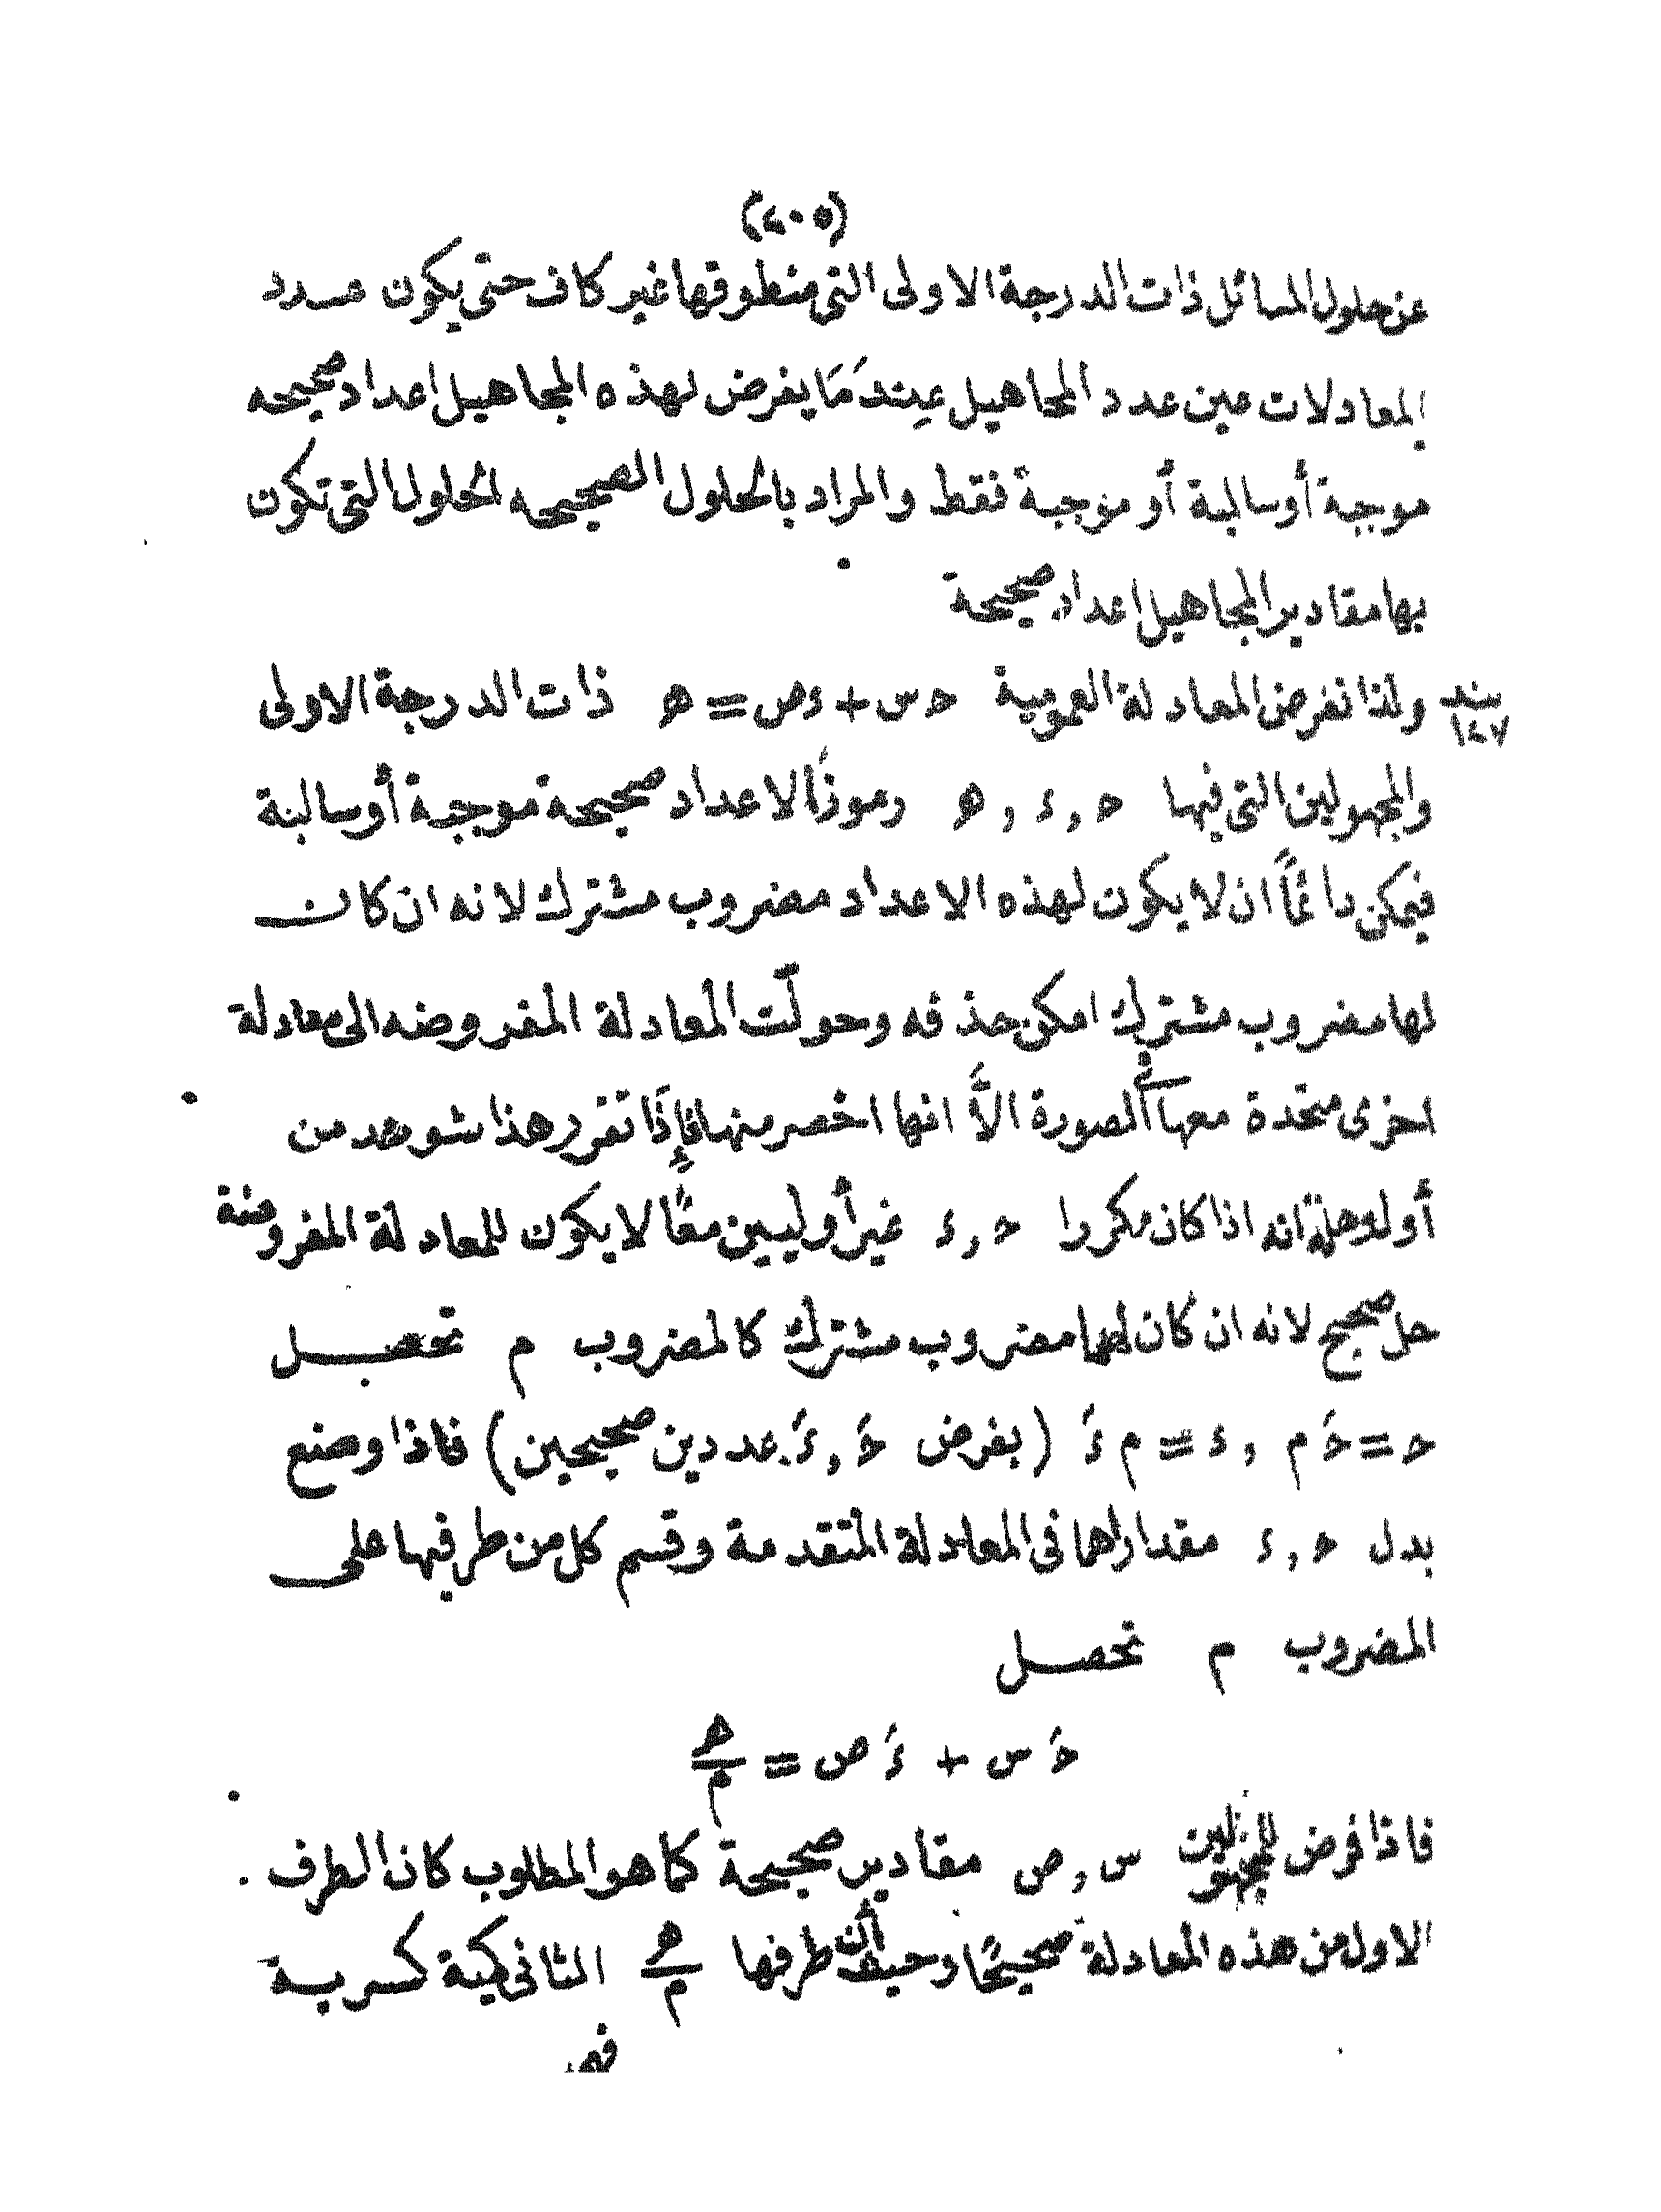 (٤٠٥)
عن حلول المسائل ذات الدرجة الاولى التى منطوقها غير كاف حتى يكون عدد
المعادلات عين عدد المجاهيل عِندَمَا يفرض لهذه المجاهيل اعداد صحيحه
موجبة أوسالبة أو موجبة فقط والمراد بالحلول الصحيحه الحلول التى تكون
بها مقادير المجاهيل اعداد صحيحة
ولذا نفرض المعادلة العمومية حـ س + ءص = هـ ذات الدرجة الاولى
بند ١٤٧
والمجهولين التى فيها حـ , ء , هـ رموزًا لاعداد صحيحة موجبة أوسالبة
فيمكن دائمًا ان لا يكون لهذه الاعداد مضروب مشترك لانه ان كان
لها مضروب مشترك امكن حذفه وحولت المعادلة المفروضه الى معادلة
اخرى متحدة معها فى الصورة الاَّ انها اخصر منها فإِذَا تقرر هذا شوهد من
أول وهلة انه اذا كان مكررا حـ , ء غير أوليين معًا لا يكون للمعادلة المفروضة
حل صحيح لانه ان كان لهما مضروب مشترك كالمضروب م تحصل
حـ = حـَ م , ء = م ءَ (بفرض حـَ , ءَ عددين صحيحين) فاذا وضع
بدل حـ , ء مقداراهما فى المعادلة المتقدمة وقسم كل من طرفيها على
المضروب م تحصل
حـَ س + ءَ ص = هـ/م
فاذا فرض للمجهولين س , ص مقادير صحيحة كما هو المطلوب كان الطرف
الاول من هذه المعادلة صحيحًا وحيث أن طرفها هـ/م الثانى كمية كسرية